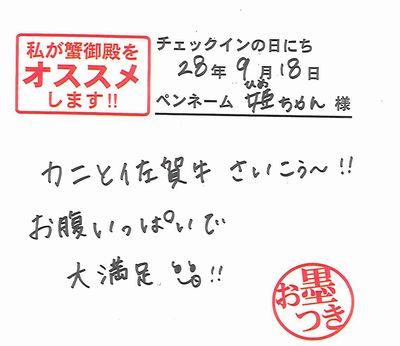 私が蟹御殿を
オススメ
します!!
チェックインの日にち
28年9月18日
ペンネーム 姫ちゃん 様
ひめ
カニと佐賀牛 さいこう〜!!
お腹いっぱいで
大満足!!
お墨つき